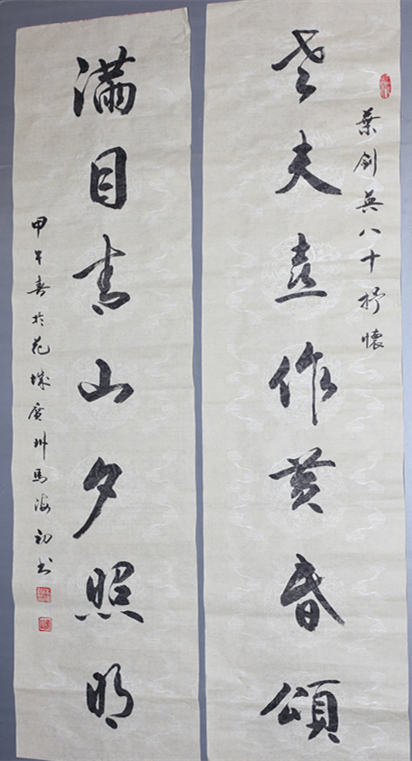 葉劍英八十抒懷
老夫喜作黄昏頌
满目青山夕照明
甲午春於花城廣州馬海初书